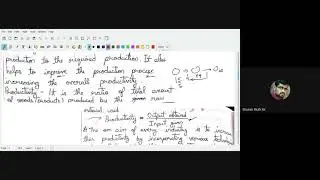 production to the required production. It also
helps to improve the production process
increasing the overall productivity.
Productivity - It is the ratio of total amount
of goods (products) produced by the raw
material used
Productivity = Output obtained
Input given
The aim of every industry is to increase
their productivity by incorporating various